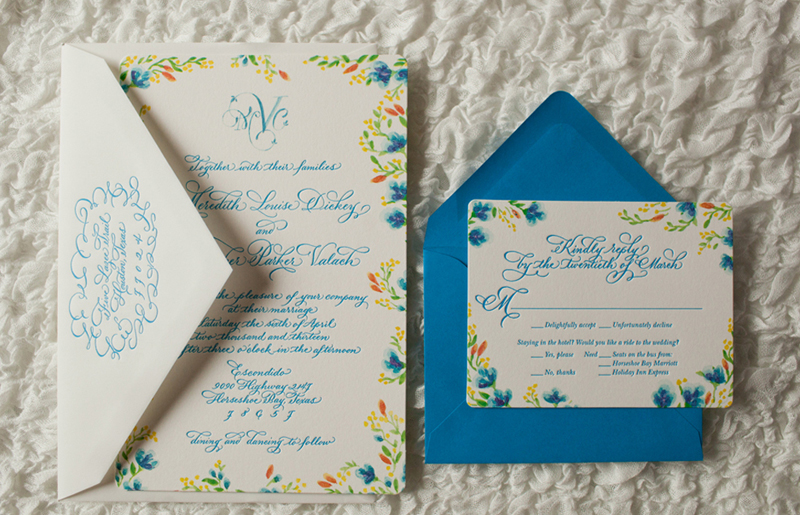 Houston, Texas
77024
V
together with their families
Meredith Louise Dickey
and
Parker Valach
the pleasure of your company
at their marriage
Saturday the Sixth of April
two thousand and thirteen
after three o'clock in the afternoon
Escondido
9090 Highway 2147
Horseshoe Bay, Texas
7 8 6 5 7
dining and dancing to follow
Kindly reply
by the Twentieth of March
M
Delightfully accept Unfortunately decline
Staying in the hotel? Would you like a ride to the wedding?
Yes, please Need Seats on the bus from:
Horseshoe Bay Marriott
No, thanks Holiday Inn Express